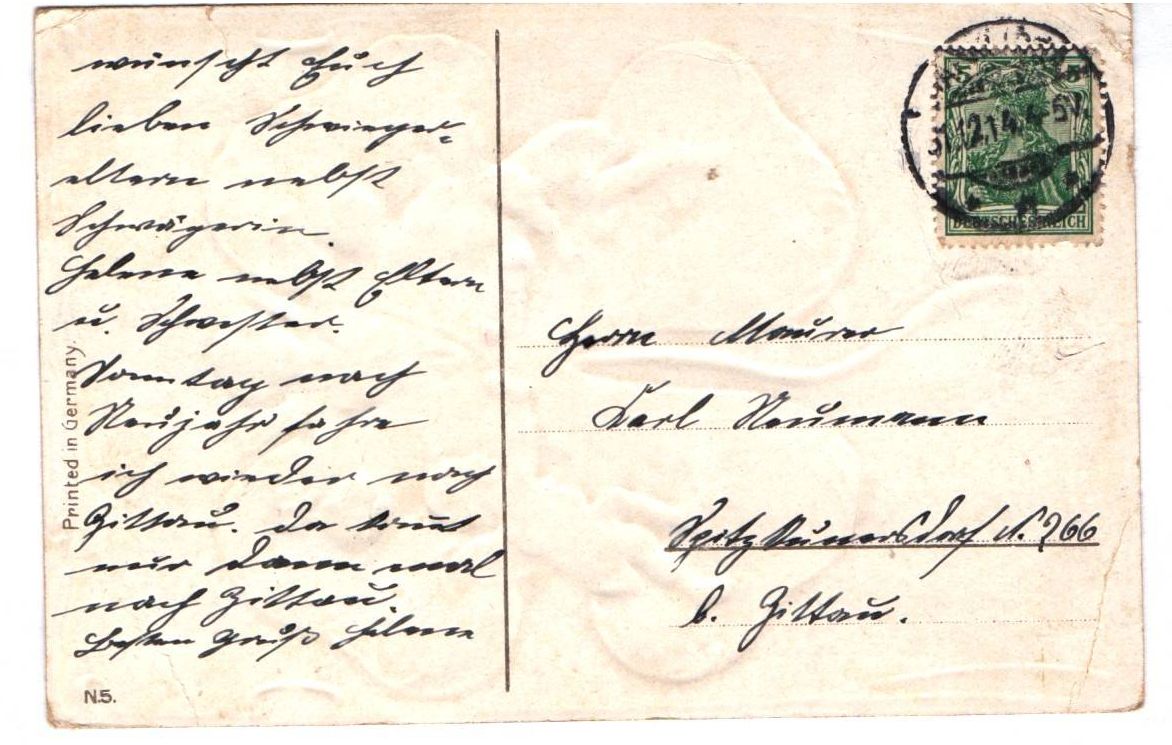 wünscht Euch
lieben Schwieger-
eltern nebst
Schwägerin
Helene nebst Eltern
u. Schwester.
Sonntag nach
Neujahr fahre
ich wieder nach
Zittau. Da kommt
nur dann mal
nach Zittau.
Besten Gruß Helene
Printed in Germany.
N.5.
31.12.14.4-5N.
DEUTSCHES REICH
Herrn Maurer
Karl Neumann
Spitzkunnersdorf N. 266
b. Zittau.